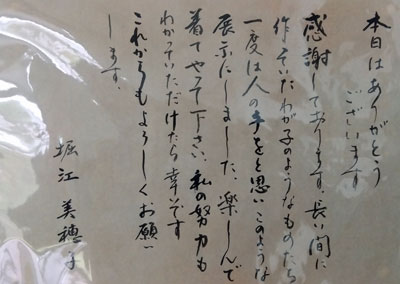 本日はありがとう
ございます
感謝しております。長い間に
作っていたわが子のようなものたち
一度は人の手をと思いこのような
展示にしました。楽しんで
着てやって下さい。私の努力も
わかっていただけたら幸いです
これからもよろしくお願い
します。
堀江美穂子